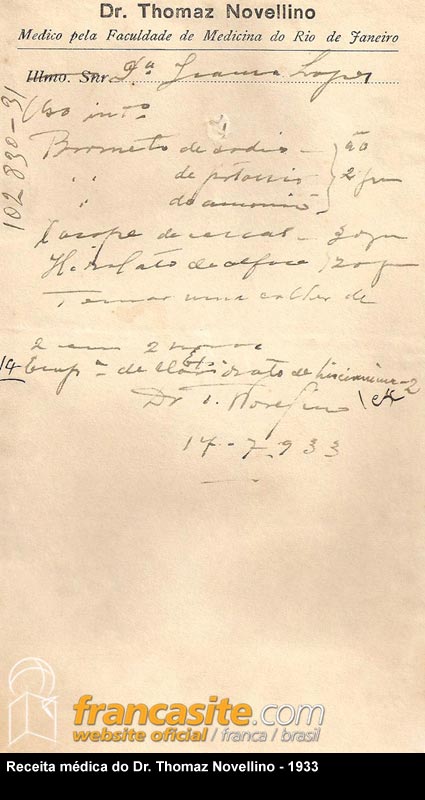 Dr. Thomaz Novellino
Medico pela Faculdade de Medicina do Rio de Janeiro
Illmo. Snr. Dª Lopes
102 830-31
Uso intº
Brometo de sodio - ão
" de potassio 2 grs
" de amonio
Xarope de - 30 grs
Hidrolato de alface 120 grs
Tomar uma colher de
2 em 2 horas
14 de de - 2
Dr T. Novellino
14-7-933
francasite.com
website oficial / franca / brasil
Receita médica do Dr. Thomaz Novellino - 1933